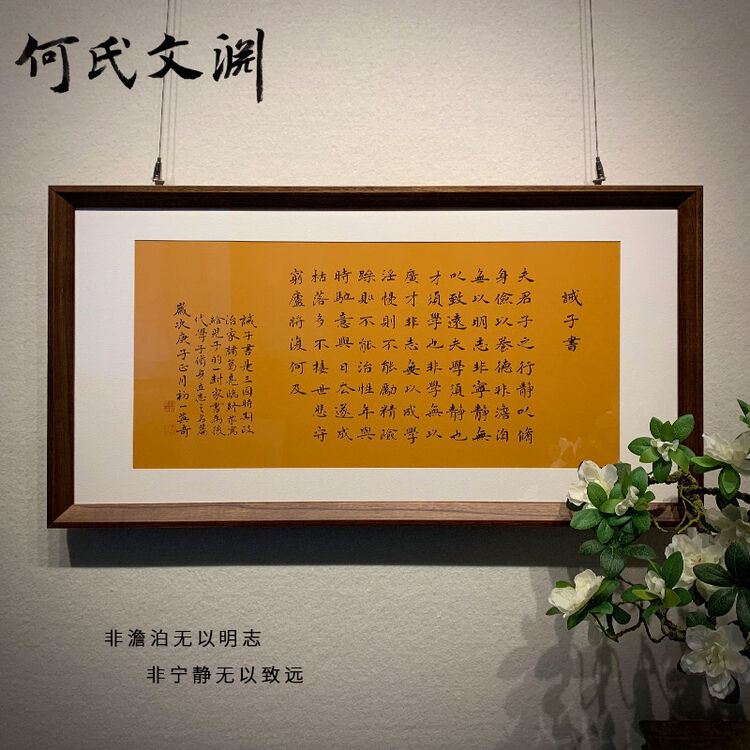 何氏文渊
誡子書
夫君子之行静以脩
身儉以養德非澹泊
無以明志非寧靜無
以致遠夫學須靜也
才須學也非學無以
廣才非志無以成學
淫慢則不能勵精險
躁則不能治性年與
時馳意與日去遂成
枯落多不接世悲守
窮廬將復何及
誡子書是三國時期政
治家諸葛亮臨終前寫
給兒子的一封家書為後
代學子脩身立志之名篇
歲次庚子正月初一
非澹泊无以明志
非宁静无以致远